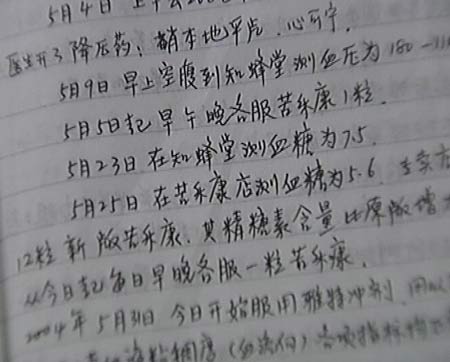 5月4日 上午
医生开了降压药、硝本地平片、心可宁.
5月9日 早上空腹到知蜂堂测血压为180-110
5月5日起 早午晚各服苦乐康1粒.
5月23日 在知蜂堂测血糖为7.5.
5月25日 在苦乐康店测血糖为5.6.
12粒新版苦乐康.其精糖素含量比原版增
从今日起每日早晚各服一粒苦乐康.
2004年5月31日 今日开始服用雅特冲剂.
粘稠度(血流何)各项指标